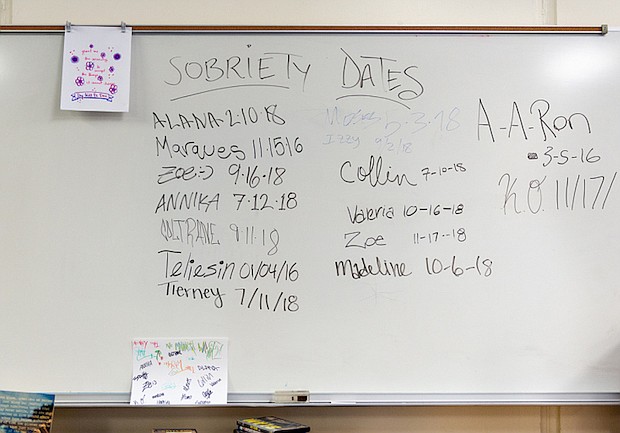 SOBRIETY DATES
ALANA-2.10.18
Marques 11.15.16
ZOE:-) 9.16.18
ANNIKA 7.12.18
COLTRANE 9.11.18
Teliesin 01/04/16
Tierney 7/11/18
3-18
Izzy
Collin 7-10-18
Valeria 10-16-18
Zoe 11-17-18
Madeline 10-6-18
A-A-Ron
3-5-16
K.O. 11/17/